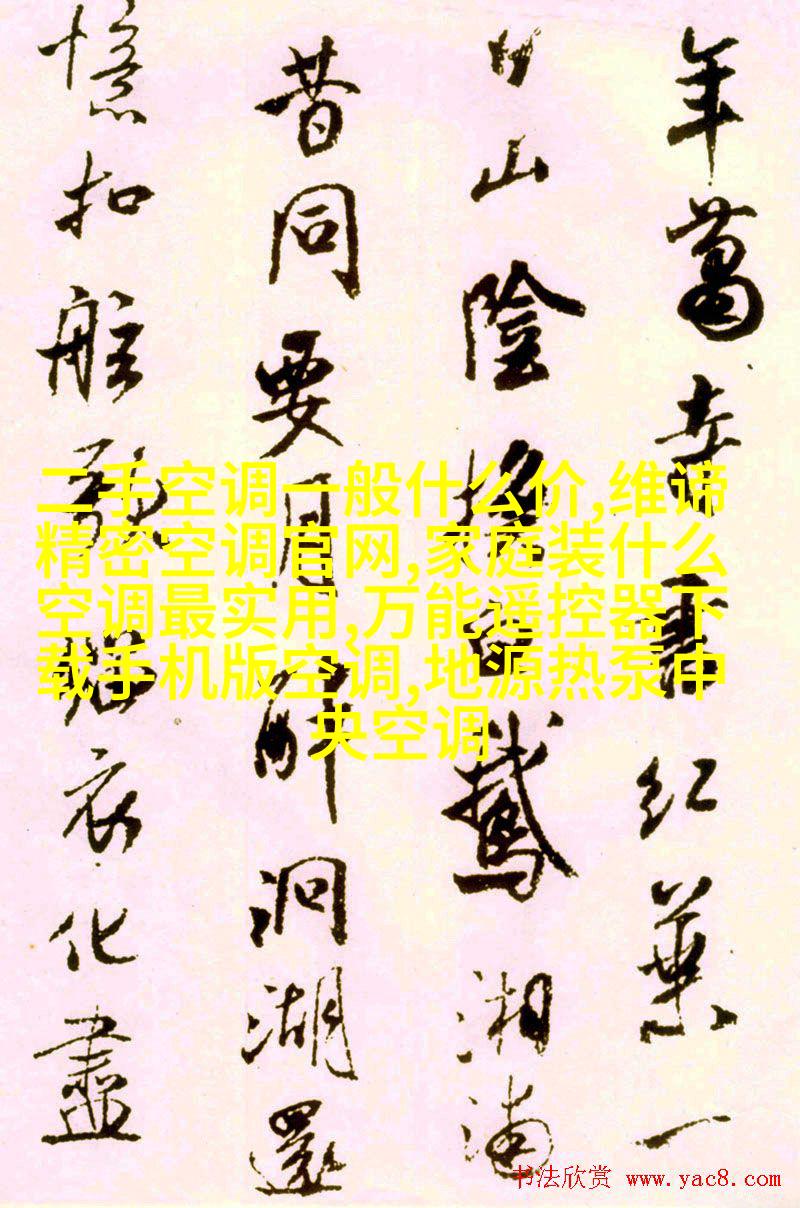 年書紅葉一
日山陰換白鵝湘浦
昔同要月醉洞湖還
憶扣舷歌緇衣化盡
二手空调一般什么价,维谛
精密空调官网,家庭装什么
空调最实用,万能遥控器下
载手机版空调,地源热泵中
央空调
书法欣赏 www.yac8.com